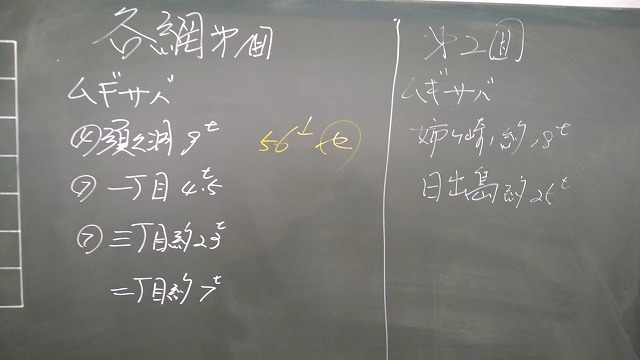 各網第1回
ムギサバ
④須久洞 9t
⑦一丁目 4.5t
⑦三丁目約23t
二丁目約7t
第2回
ムギサバ
姉ヶ崎,約18t
日出島約25t